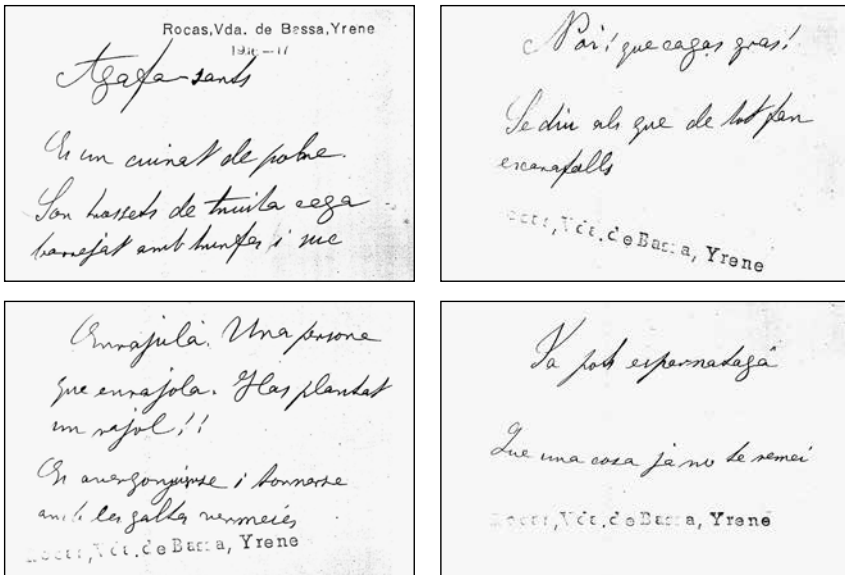 Rocas,Vda. de Bassa,Yrene
Agafa-sants
Es un cuinat de pobre.
Son trossets de truita cega
barrejat amb trunfes i suc
Noi! que cagas gras!
Se diu als que de tot fan
escarafalls
Rocas,Vda.de Bassa, Yrene
Enrajulà. Una persona
que enrajola. Has plantat
un rajol!!
Es avergonyirse i tornarse
amb les galtes vermeies
Rocas,Vda.de Bassa, Yrene
Ja pots espernatagà
Que una cosa ja no te remei
Rocas,Vda.de Bassa, Yrene